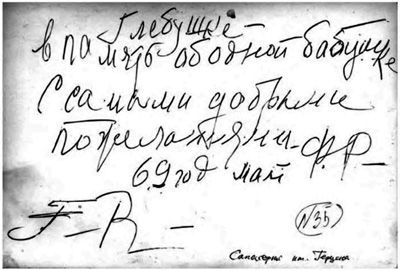 Глебушке
в память об одной бабушке
С самыми добрыми
пожеланиями Ф.Р.
69 год май
F. R.
N 35
Санаторий им. Герцена